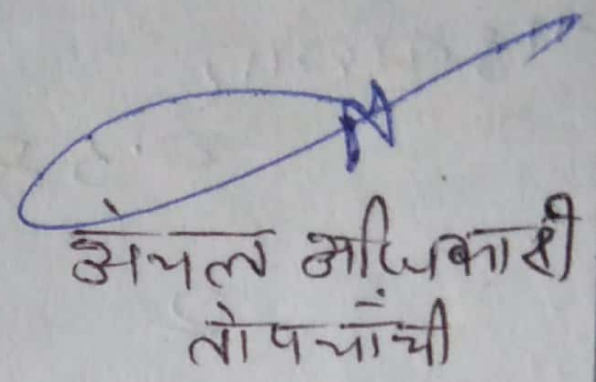 अंचल अधिकारी
तोपचाँची